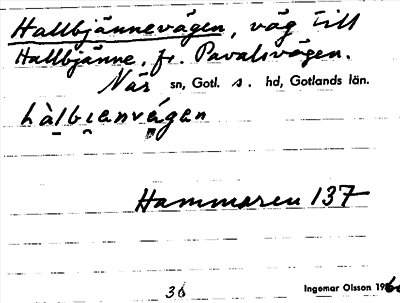 Hallbjännevägen, väg till
Hallbjänne, fr. Pavalsvägen.
När sn, Gotl. s. hd, Gotlands län.
hàlbianvágan
Hammaren 137
36 Ingemar Olsson 1966